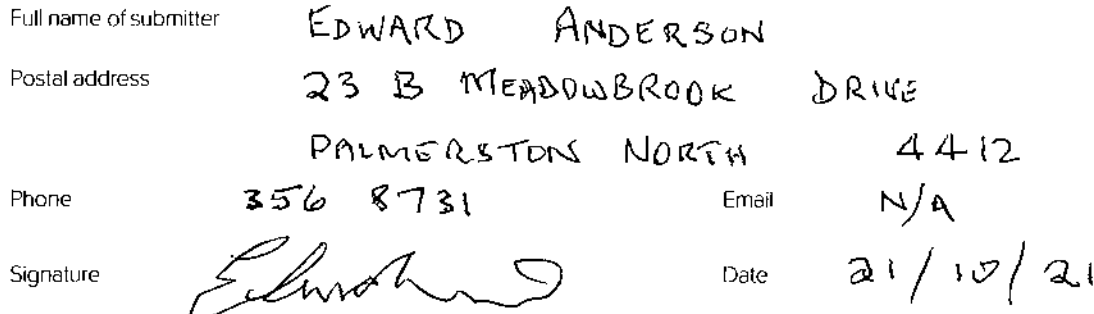 Full name of submitter EDWARD ANDERSON
Postal address 23 B MEADOWBROOK DRIVE
PALMERSTON NORTH 4412
Phone 356 8731 Email N/A
Signature Date 21/10/21